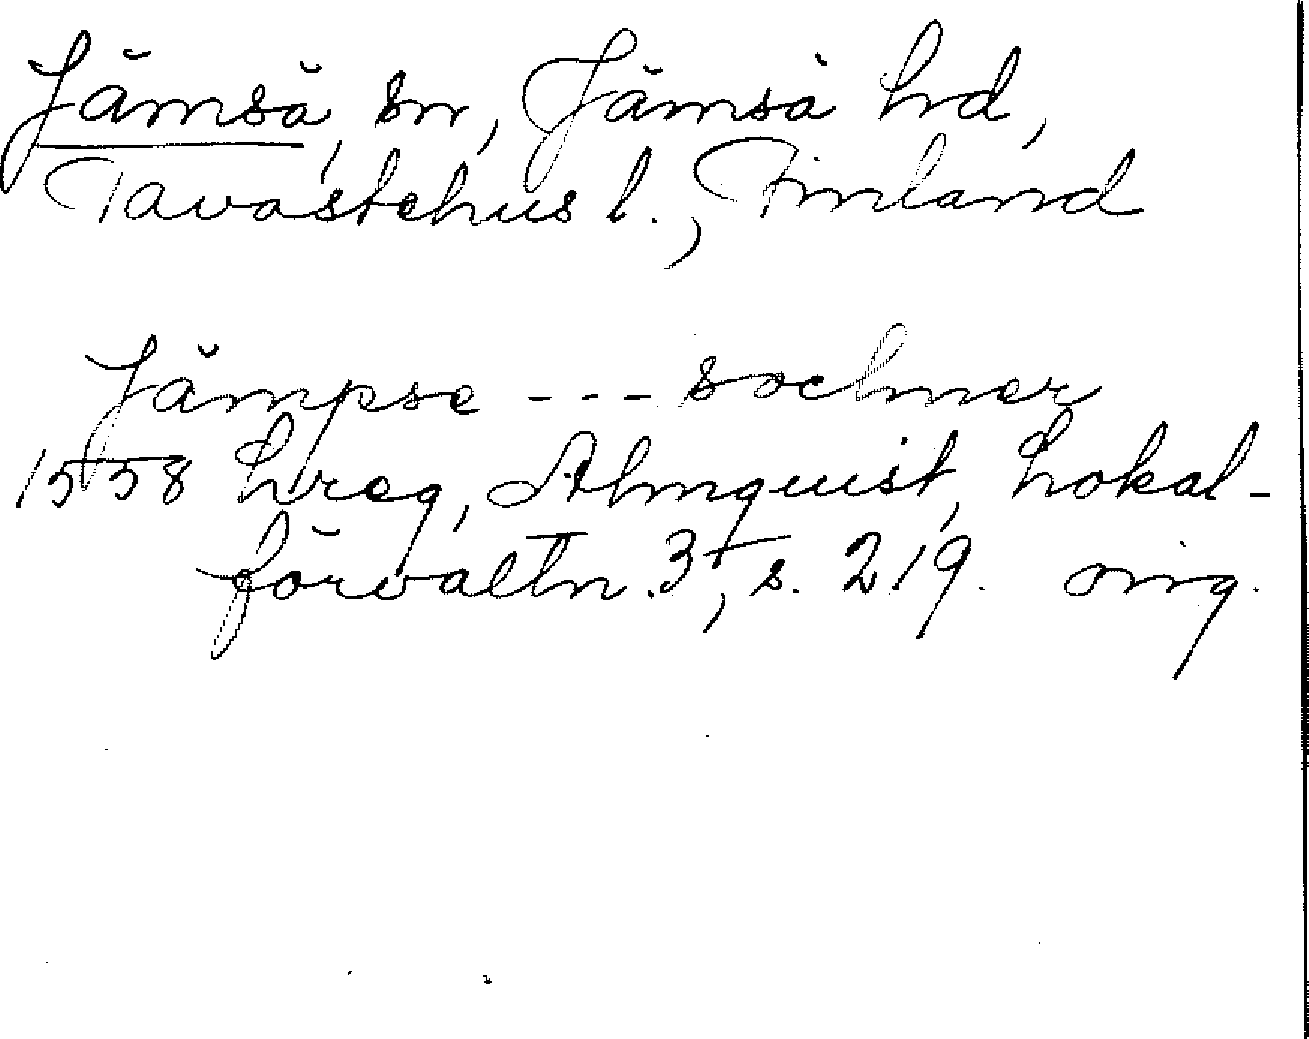 Jämsä, sn, Jämsä hd,
Tavastehus l., Finland
Jämpse --- sochner
1558 hreg, Almquist, Lokal-
förvaltn. 3, s. 219. orig.